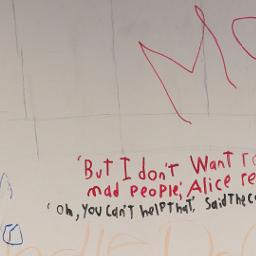 Mo
'But I don't Want to
mad people', Alice re
'Oh, you can't help that', Said the C